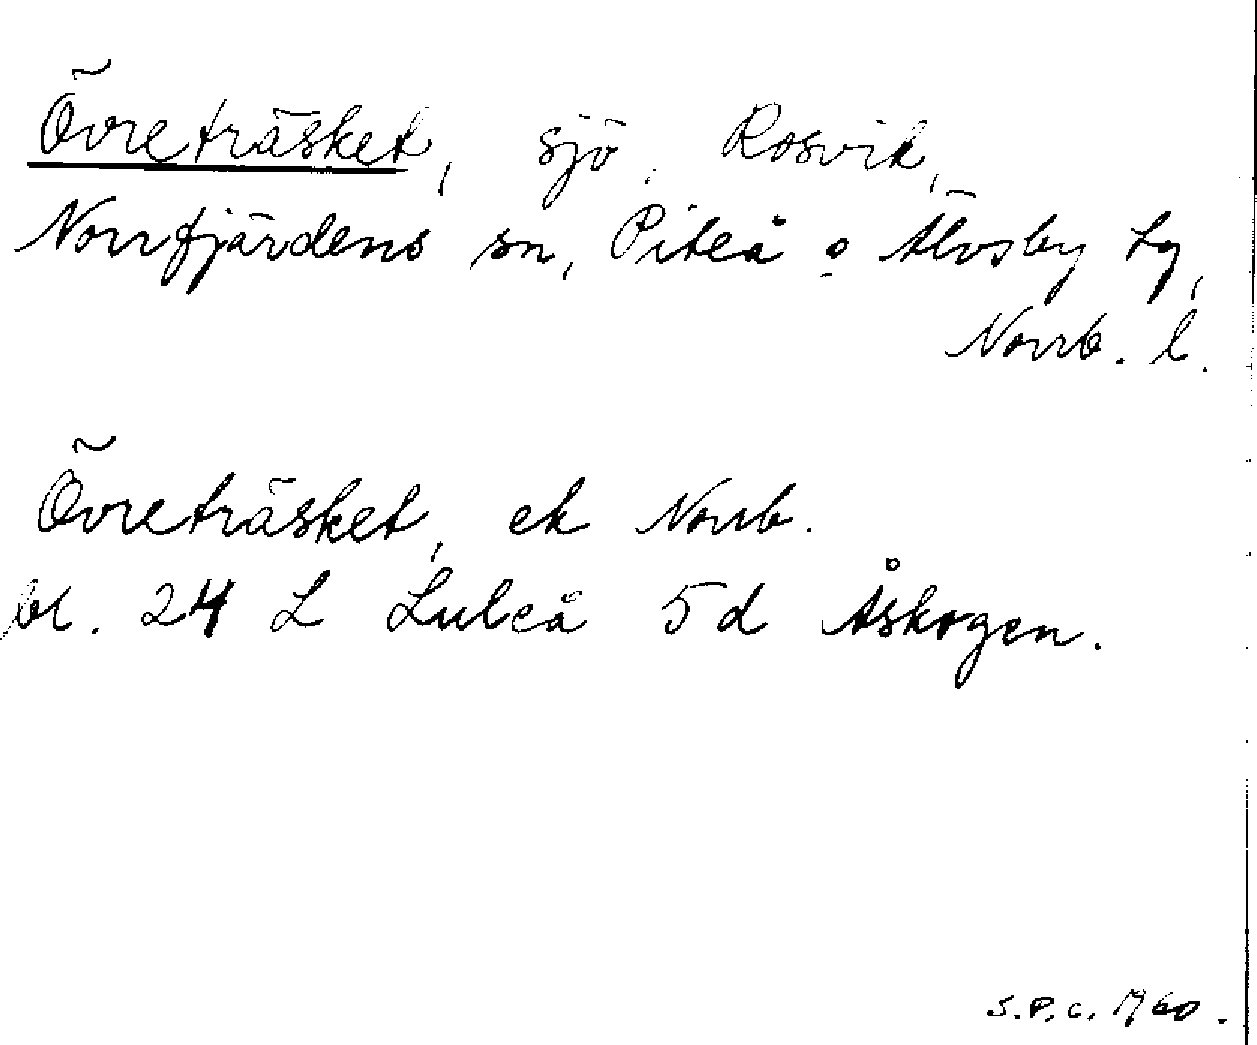 Övreträsket, sjö, Rosvik,
Norrfjärdens sn, Piteå o Älvsby tg,
Norrb. l.
Övreträsket, ek Norrb.
bl. 24 L Luleå 5d Åskogen.
S.P.C. 1960.